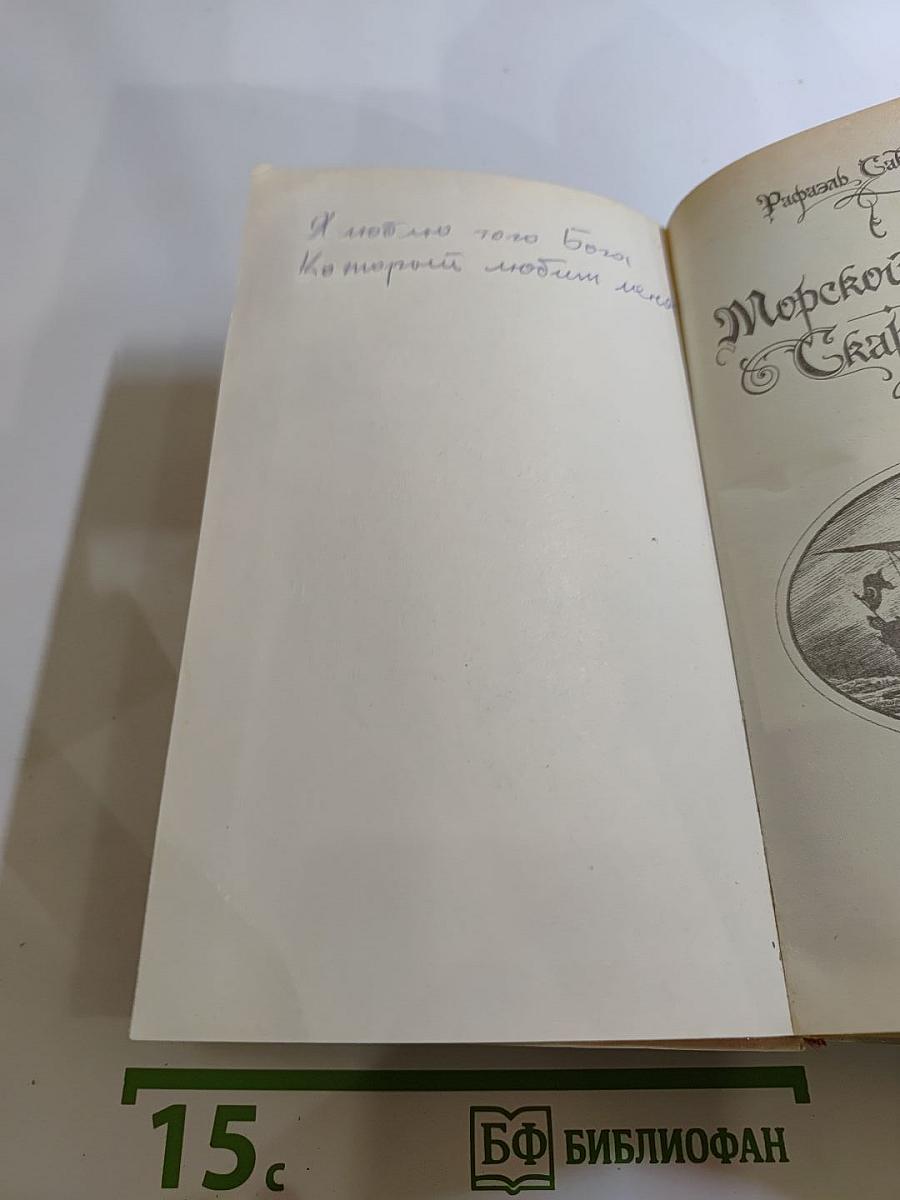 Я люблю того Бога
Который любит меня
Рафаэль Са
Морской
Ска
15 с
БФ БИБЛИОФАН